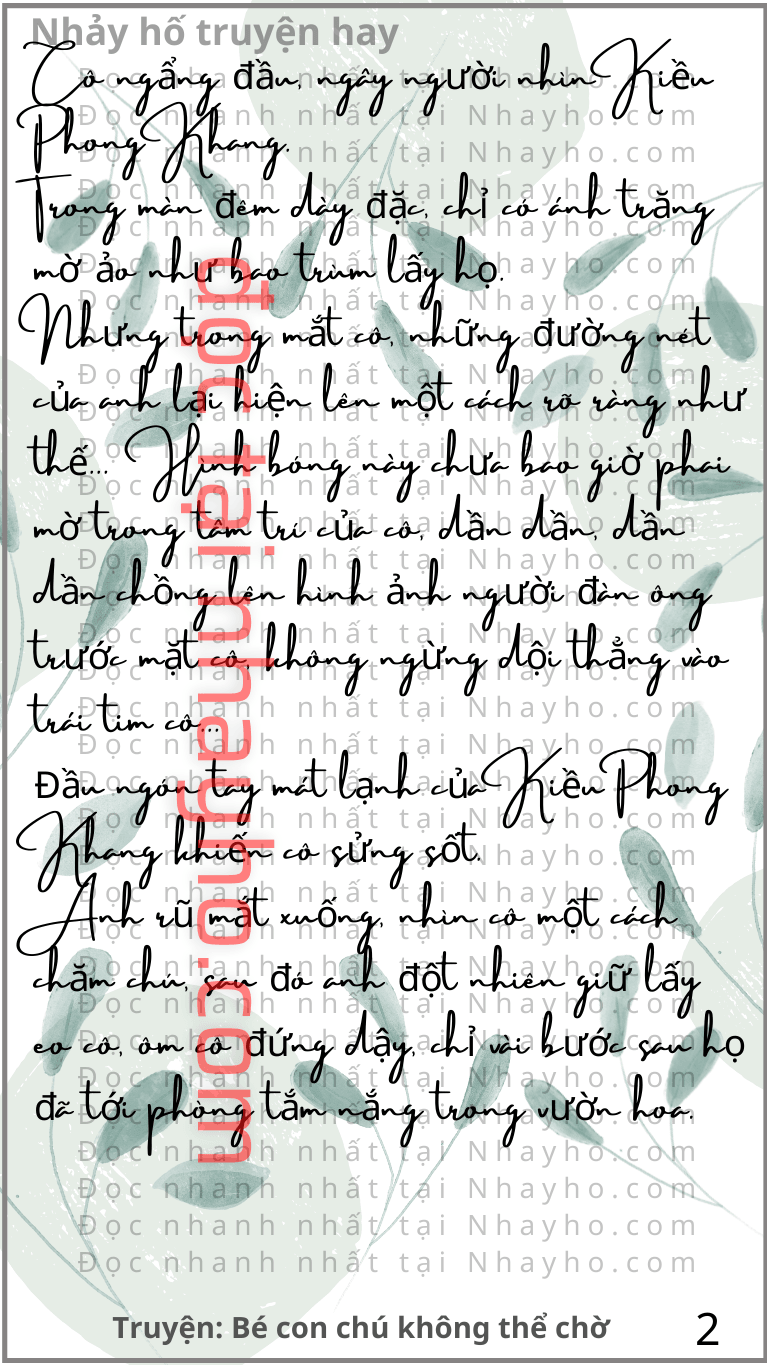 Nhảy hố truyện hay
Cô ngẩng đầu, ngây người nhìn Kiều
Phong Khang.
Trong màn đêm dày đặc, chỉ có ánh trăng
mờ ảo như bao trùm lấy họ.
Nhưng trong mắt cô, những đường nét
của anh lại hiện lên một cách rõ ràng như
thế... Hình bóng này chưa bao giờ phai
mờ trong tâm trí của cô, dần dần, dần
dần chồng lên hình ảnh người đàn ông
trước mặt cô, không ngừng dội thẳng vào
trái tim cô...
Đầu ngón tay mát lạnh của Kiều Phong
Khang khiến cô sửng sốt.
Anh rũ mắt xuống, nhìn cô một cách
chăm chú, sau đó anh đột nhiên giữ lấy
eo cô, ôm cô đứng dậy, chỉ vài bước sau họ
đã tới phòng tắm nắng trong vườn hoa.
đọc tại nhayho.com
Đọc nhanh nhất tại Nhayho.com
Đọc nhanh nhất tại Nhayho.com
Đọc nhanh nhất tại Nhayho.com
Đọc nhanh nhất tại Nhayho.com
Truyện: Bé con chú không thể chờ
2